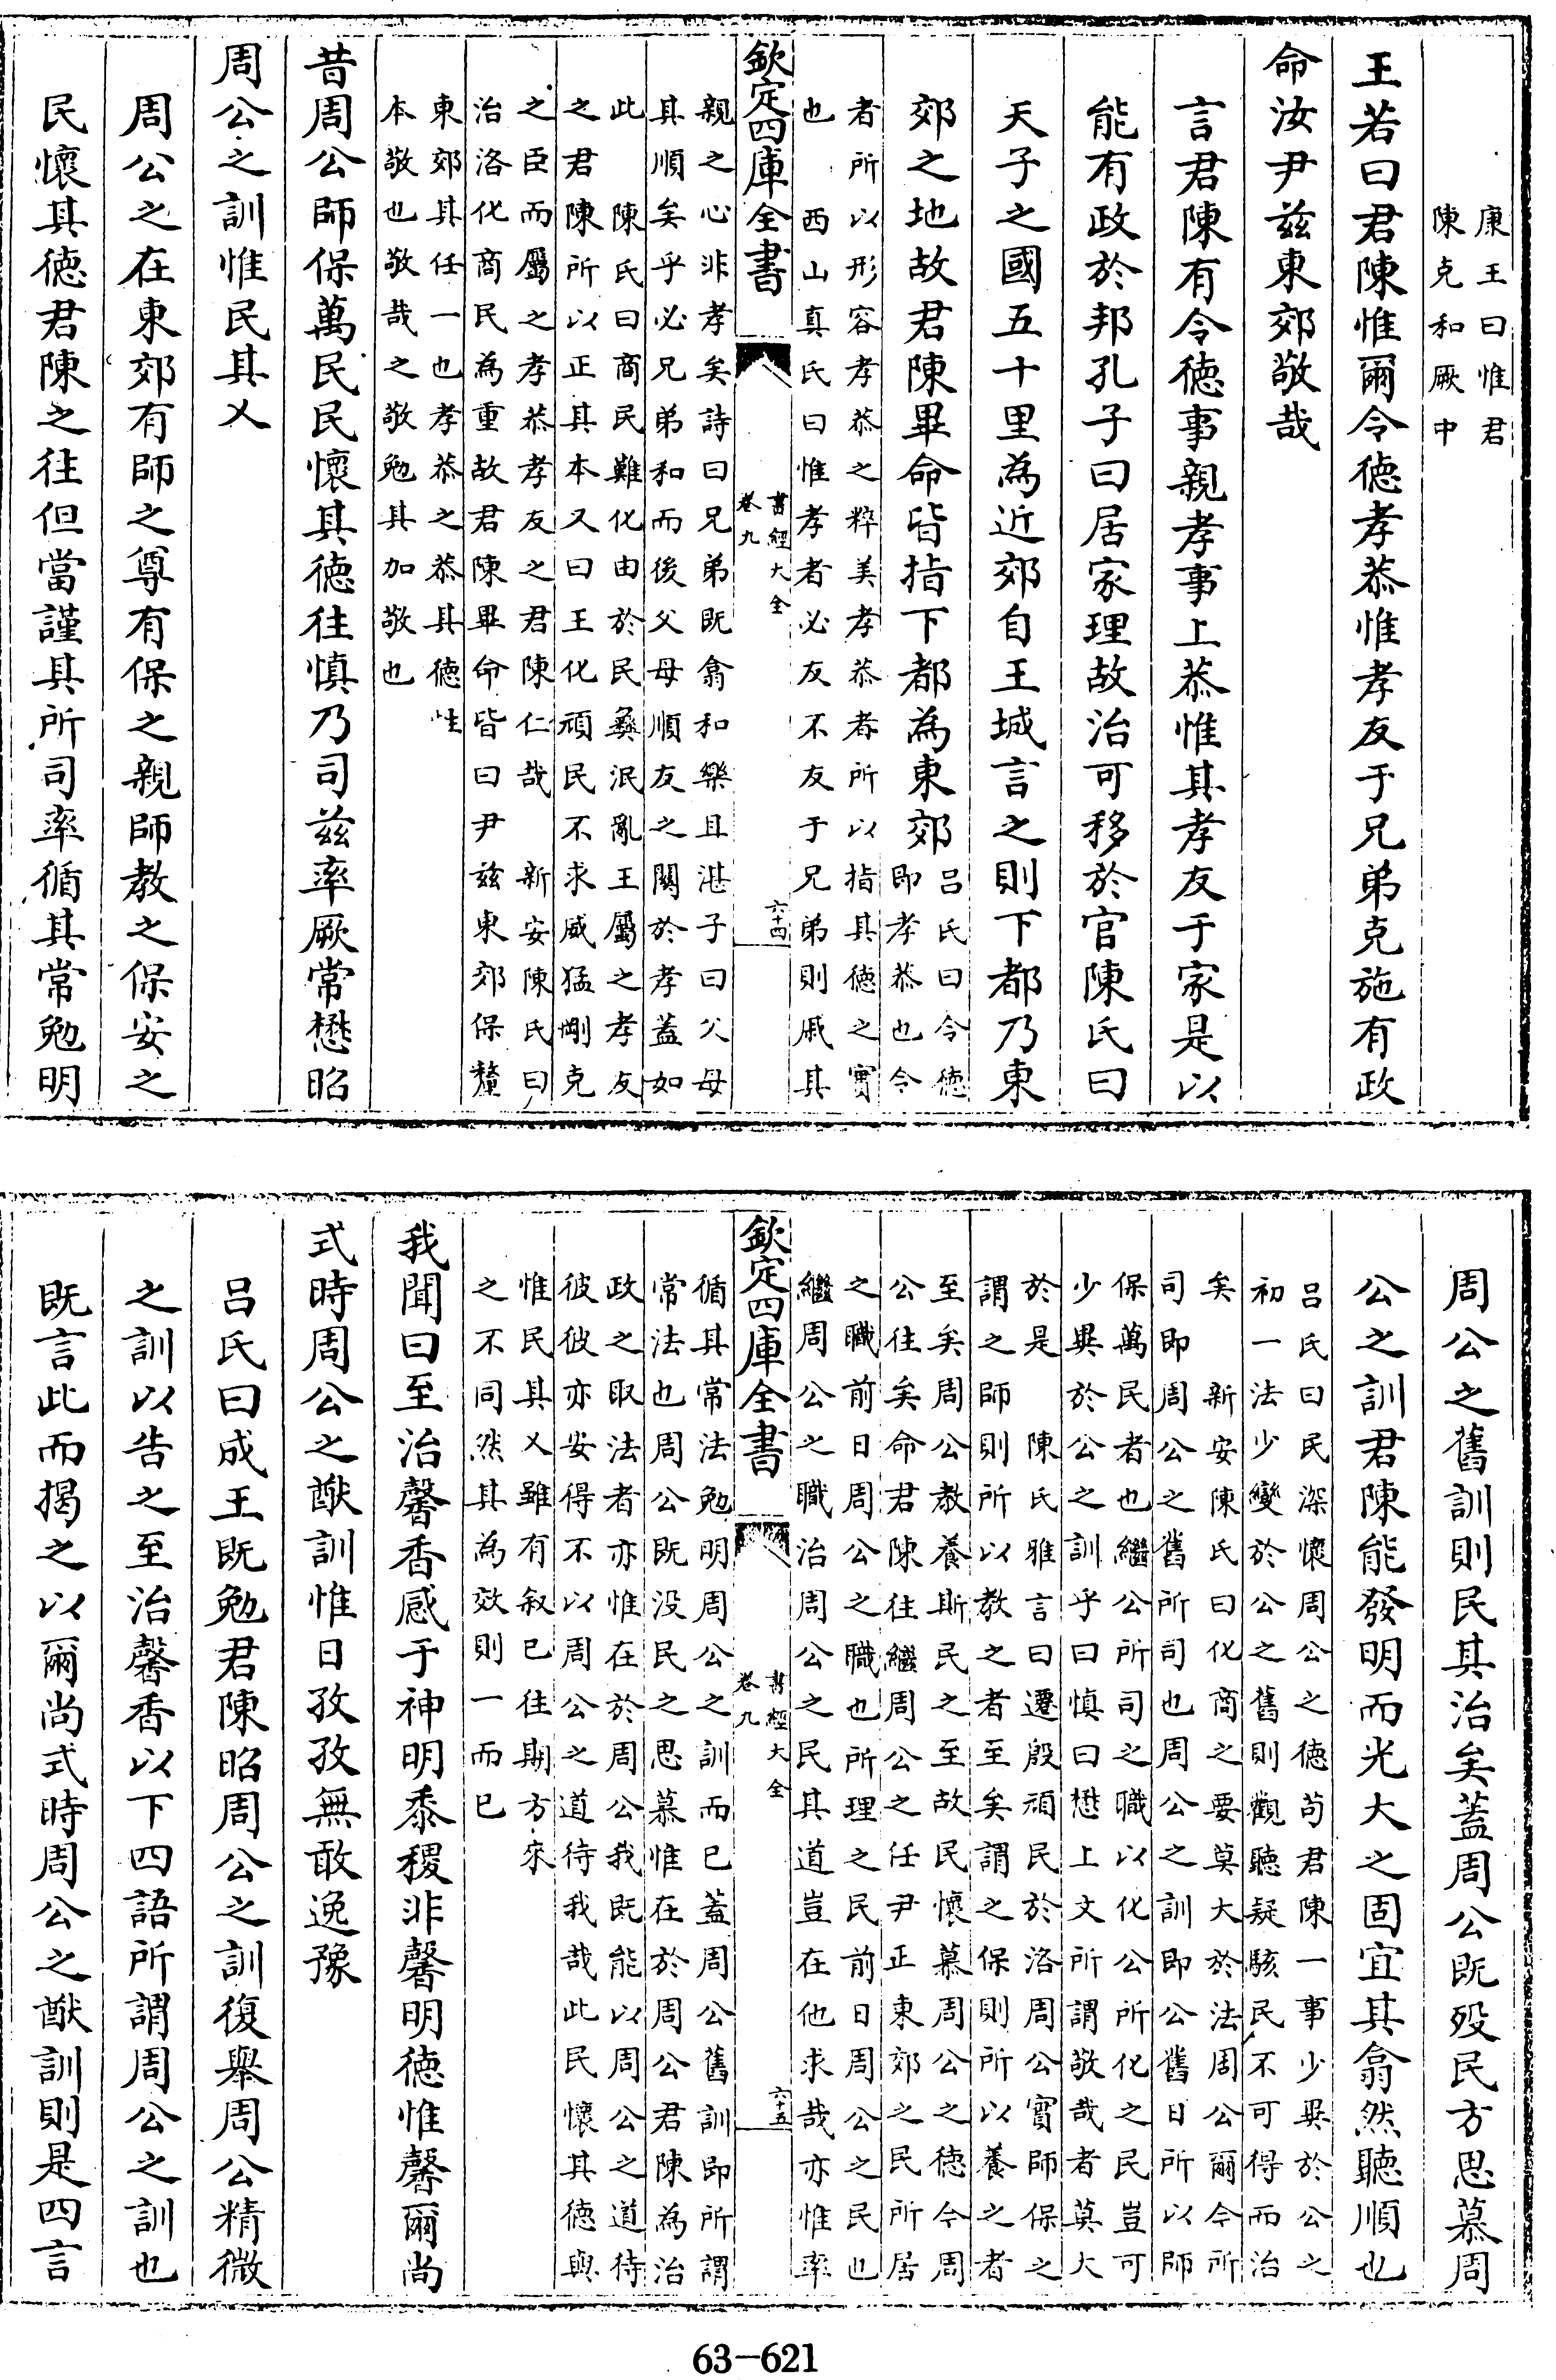 康王曰惟君
陳克和厥中
王若曰君陳惟爾令德孝恭惟孝友于兄弟克施有政
命汝尹兹東郊敬哉
言君陳有令德事親孝事上恭惟其孝友于家是以
能有政於邦孔子曰居家理故治可移於官陳氏曰
天子之國五十里為近郊自王城言之則下都乃東
郊之地故君陳畢命皆指下都為東郊
吕氏曰令德
即孝恭也令
者所以形容孝恭之粹美孝恭者所以指其德之實
也 西山真氏曰惟孝者必友不友于兄弟則戚其
欽定四庫全書
書經大全
卷九
六十四
親之心非孝矣詩曰兄弟既翕和樂且湛子曰父母
其順矣乎必兄弟和而後父母順友之闗於孝蓋如
此 陳氏曰商民難化由於民彞泯亂王屬之孝友
之君陳所以正其本又曰王化頑民不求威猛剛克
之臣而屬之孝恭孝友之君陳仁哉 新安陳氏曰
治洛化商民為重故君陳畢命皆曰尹兹東郊保釐
東郊其任一也孝恭之恭其德性
本敬也敬哉之敬勉其加敬也
昔周公師保萬民民懷其德往慎乃司兹率厥常懋昭
周公之訓惟民其乂
周公之在東郊有師之尊有保之親師教之保安之
民懷其德君陳之往但當謹其所司率循其常勉明
周公之舊訓則民其治矣蓋周公既殁民方思慕周
公之訓君陳能發明而光大之固宜其翕然聽順也
吕氏曰民深懷周公之德苟君陳一事少異於公之
初一法少變於公之舊則觀聽疑駭民不可得而治
矣 新安陳氏曰化商之要莫大於法周公爾今所
司即周公之舊所司也周公之訓即公舊日所以師
保萬民者也繼公所司之職以化公所化之民豈可
少異於公之訓乎曰慎曰懋上文所謂敬哉者莫大
於是 陳氏雅言曰遷殷頑民於洛周公實師保之
謂之師則所以教之者至矣謂之保則所以養之者
至矣周公教養斯民之至故民懷慕周公之德今周
公往矣命君陳往繼周公之任尹正東郊之民所居
之職前日周公之職也所理之民前日周公之民也
繼周公之職治周公之民其道豈在他求哉亦惟率
欽定四庫全書
書經大全
卷九
六十五
循其常法勉明周公之訓而已蓋周公舊訓即所謂
常法也周公既没民之思慕惟在於周公君陳為治
政之取法者亦惟在於周公我既能以周公之道待
彼彼亦安得不以周公之道待我哉此民懷其德與
惟民其乂雖有叙已往期方來
之不同然其為效則一而已
我聞曰至治馨香感于神明黍稷非馨明德惟馨爾尚
式時周公之猷訓惟日孜孜無敢逸豫
吕氏曰成王既勉君陳昭周公之訓復舉周公精微
之訓以告之至治馨香以下四語所謂周公之訓也
既言此而揭之以爾尚式時周公之猷訓則是四言
63-621